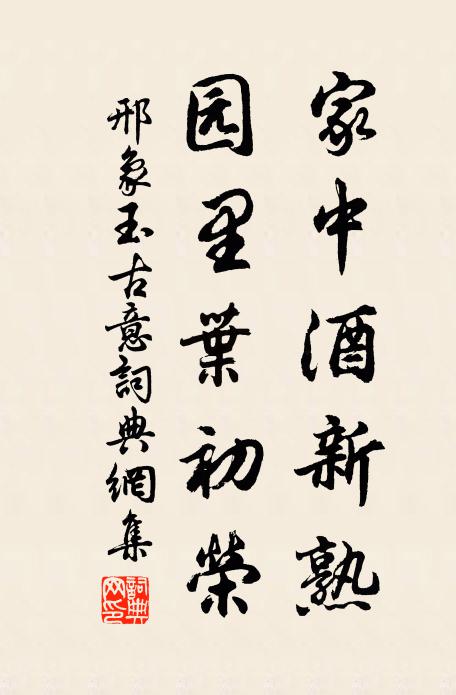 家中酒新熟
园里葉初榮
邢象玉古意詞典網集
詞典網印